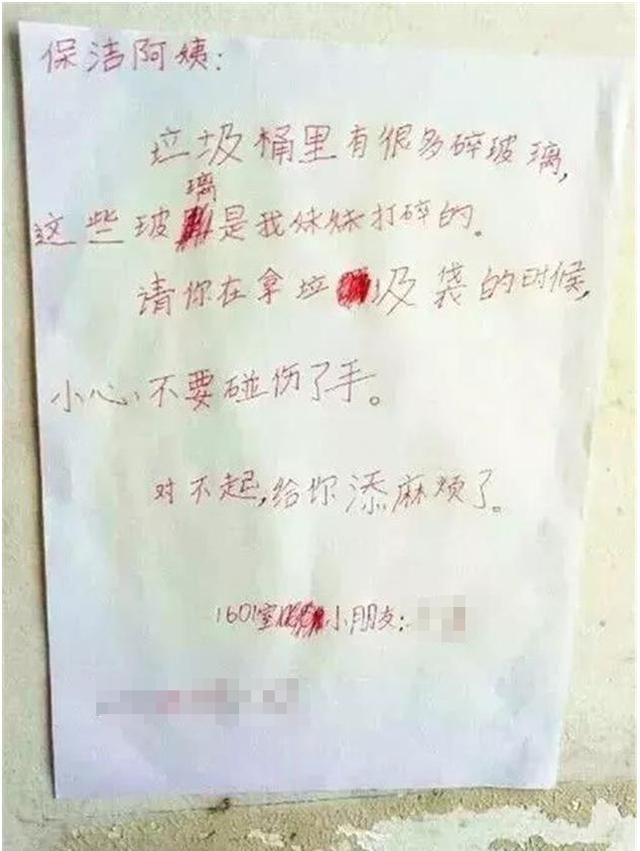 保洁阿姨:
垃圾桶里有很多碎玻璃,
这些玻璃是我妹妹打碎的。
请你在拿垃圾袋的时候,
小心,不要碰伤了手。
对不起,给你添麻烦了。
1601室小朋友: